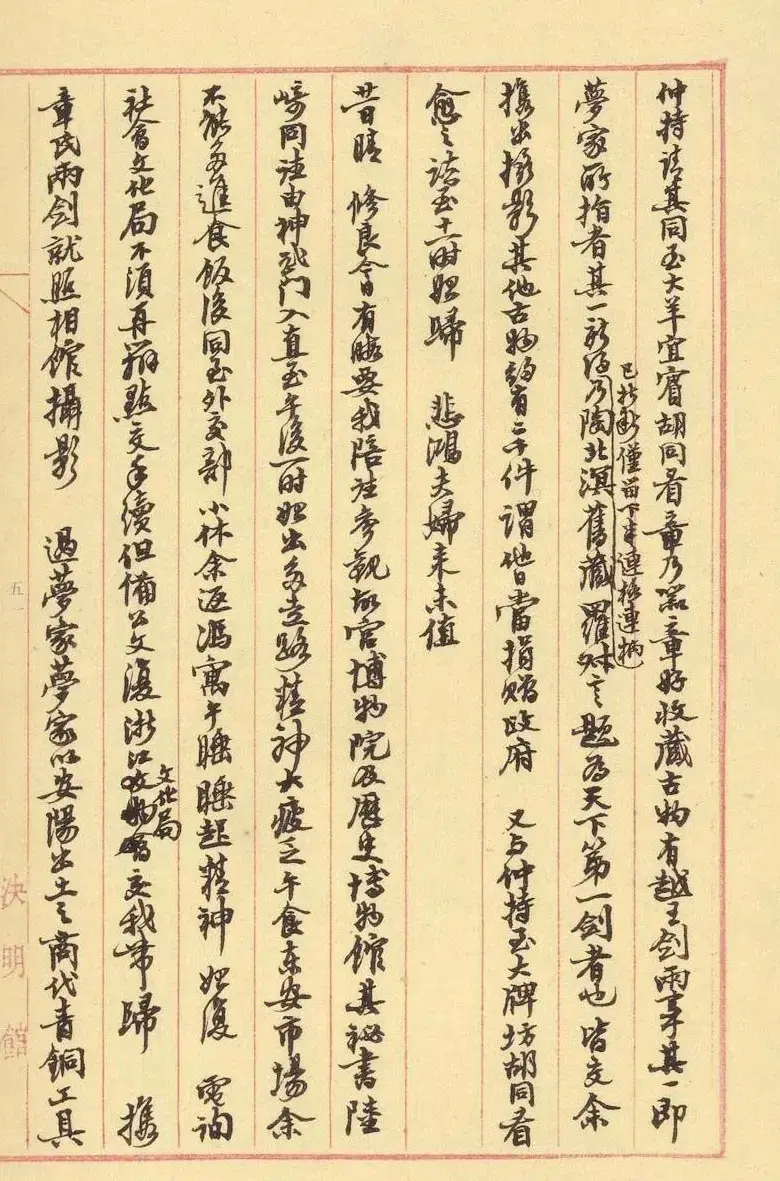 仲持请其同至大羊宜宾胡同看章乃器章好收藏古物有越王剑两事其一即
梦家所指者其一新得乃陶北溟旧藏罗叔言题为天下第一剑者也皆交余
已折断仅留下半连格连柄
携出摄影其他古物约有二千件谓他日当捐赠政府 又与仲持至大牌坊胡同看
愈之谈至十一时始归 悲鸿夫妇来未值
昔日晴 修良今日有暇要我陪往参观故宫博物院及历史博物馆其秘书陆
同往由神武门入直至午后一时始出多走路精神大疲乏午食东安市场余
不能多进食饭后同至外交部小林余返冯寓午睡睡起精神始复 电询
社会文化局不须再办点交手续但备公文复浙江文化局交我带归 携
章氏两剑就照相馆摄影 过梦家梦家以安阳出土之商代青铜工具
五一
决明馆